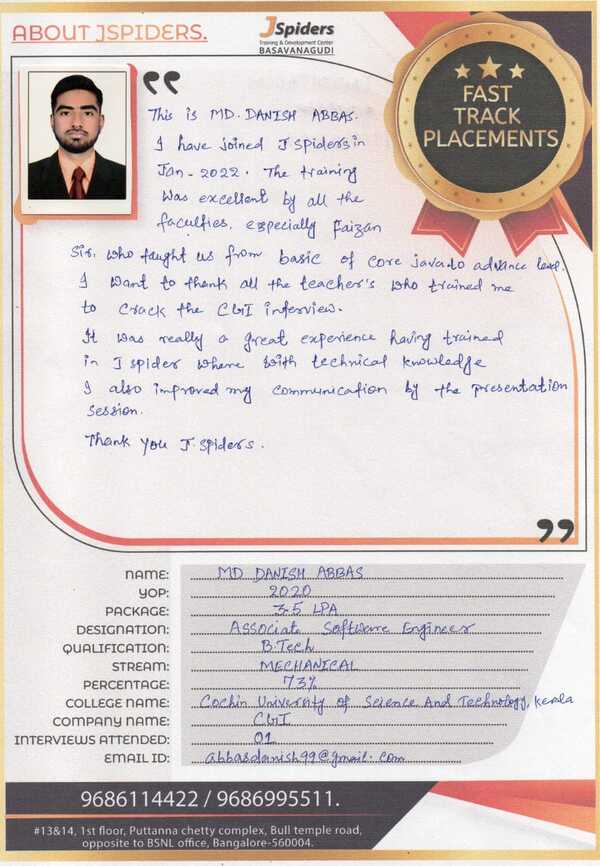 ABOUT JSPIDERS.
JSpiders
Training & Development Center
BASAVANAGUDI
FAST
TRACK
PLACEMENTS
This is MD. DANISH ABBAS.
I have joined J spiders in
Jan - 2022. The training
was excellent by all the
faculties, especially Faizan
Sir. who taught us from basic of core java to advance level.
I want to thank all the teacher's who trained me
to crack the CGI interview.
It was really a great experience having trained
in J spider where with technical knowledge
I also improved my communication by the presentation
session.
Thank you J. spiders.
NAME: MD DANISH ABBAS
YOP: 2020
PACKAGE: 3.5 LPA
DESIGNATION: Associate Software Engineer
QUALIFICATION: B.Tech
STREAM: MECHANICAL
PERCENTAGE: 73%
COLLEGE NAME: Cochin University of Science And Technology, Kerala
COMPANY NAME: CGI
INTERVIEWS ATTENDED: 01
EMAIL ID: abbasdanish99@gmail.com
9686114422 / 9686995511.
#13&14, 1st floor, Puttanna chetty complex, Bull temple road,
opposite to BSNL office, Bangalore-560004.